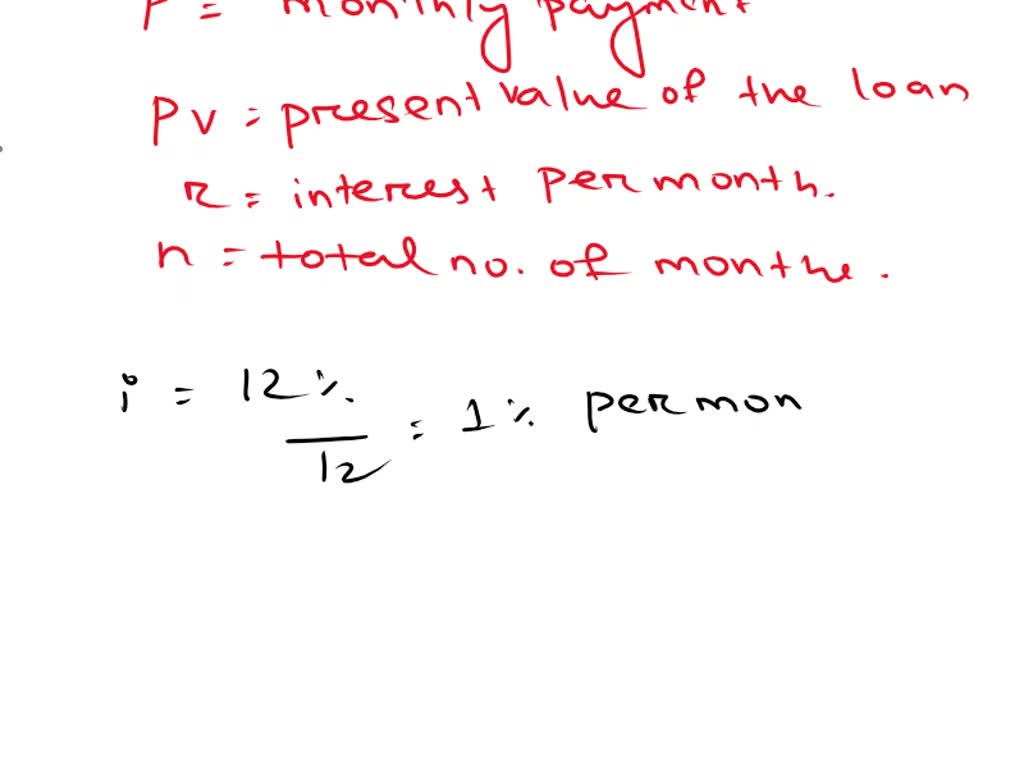 P = monthly payment
PV = present value of the loan
r = interest per month.
n = total no. of months.
i = 12%/12 = 1% per mon